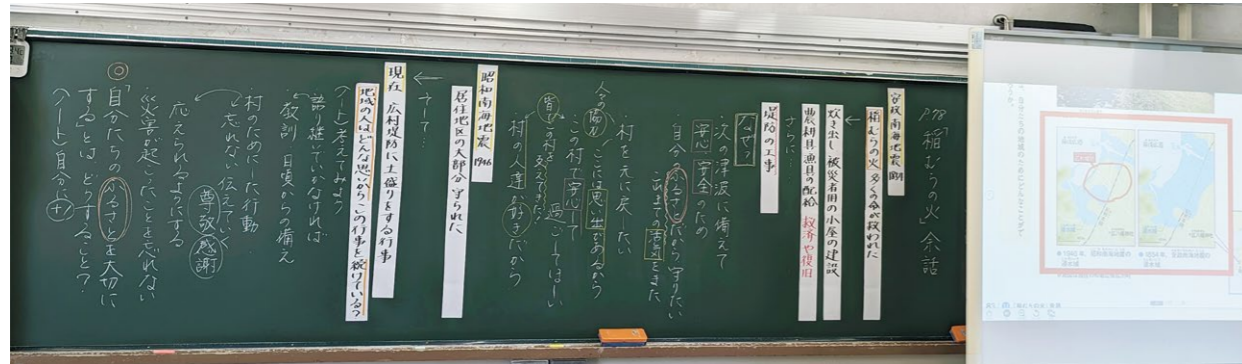 P78「稲むらの火」余話
安政南海地震
稲むらの火 多くの命が救われた
炊き出し 被災者用の小屋の建設
農耕具・漁具の配給 救済や復旧
さらに…
堤防の工事
なぜ?
・次の津波に備えて
安心 安全のため
・自分のふるさとだから守りたい
・村を元に戻したい
ここには思い出もあるから
この村で安心して
過ごしてほしい
皆でこの村を
支えてきた
村の人達が好きだから
昭和南海地震 1946
居住地区の大部分 守られた
そして…
現在 広村堤防に土盛りをする行事
地域の人はどんな思いからこの行事を続けている?
(ノート)考えてみよう
語り継いでいかなければ
教訓 日頃からの備え
村のためにした行動
忘れない 伝えていく
尊敬 感謝
応えられるようにする
・災害が起こったことを忘れない
◎「自分たちのふるさとを大切に
する」とは、どうすること?
(ノート)自分に+